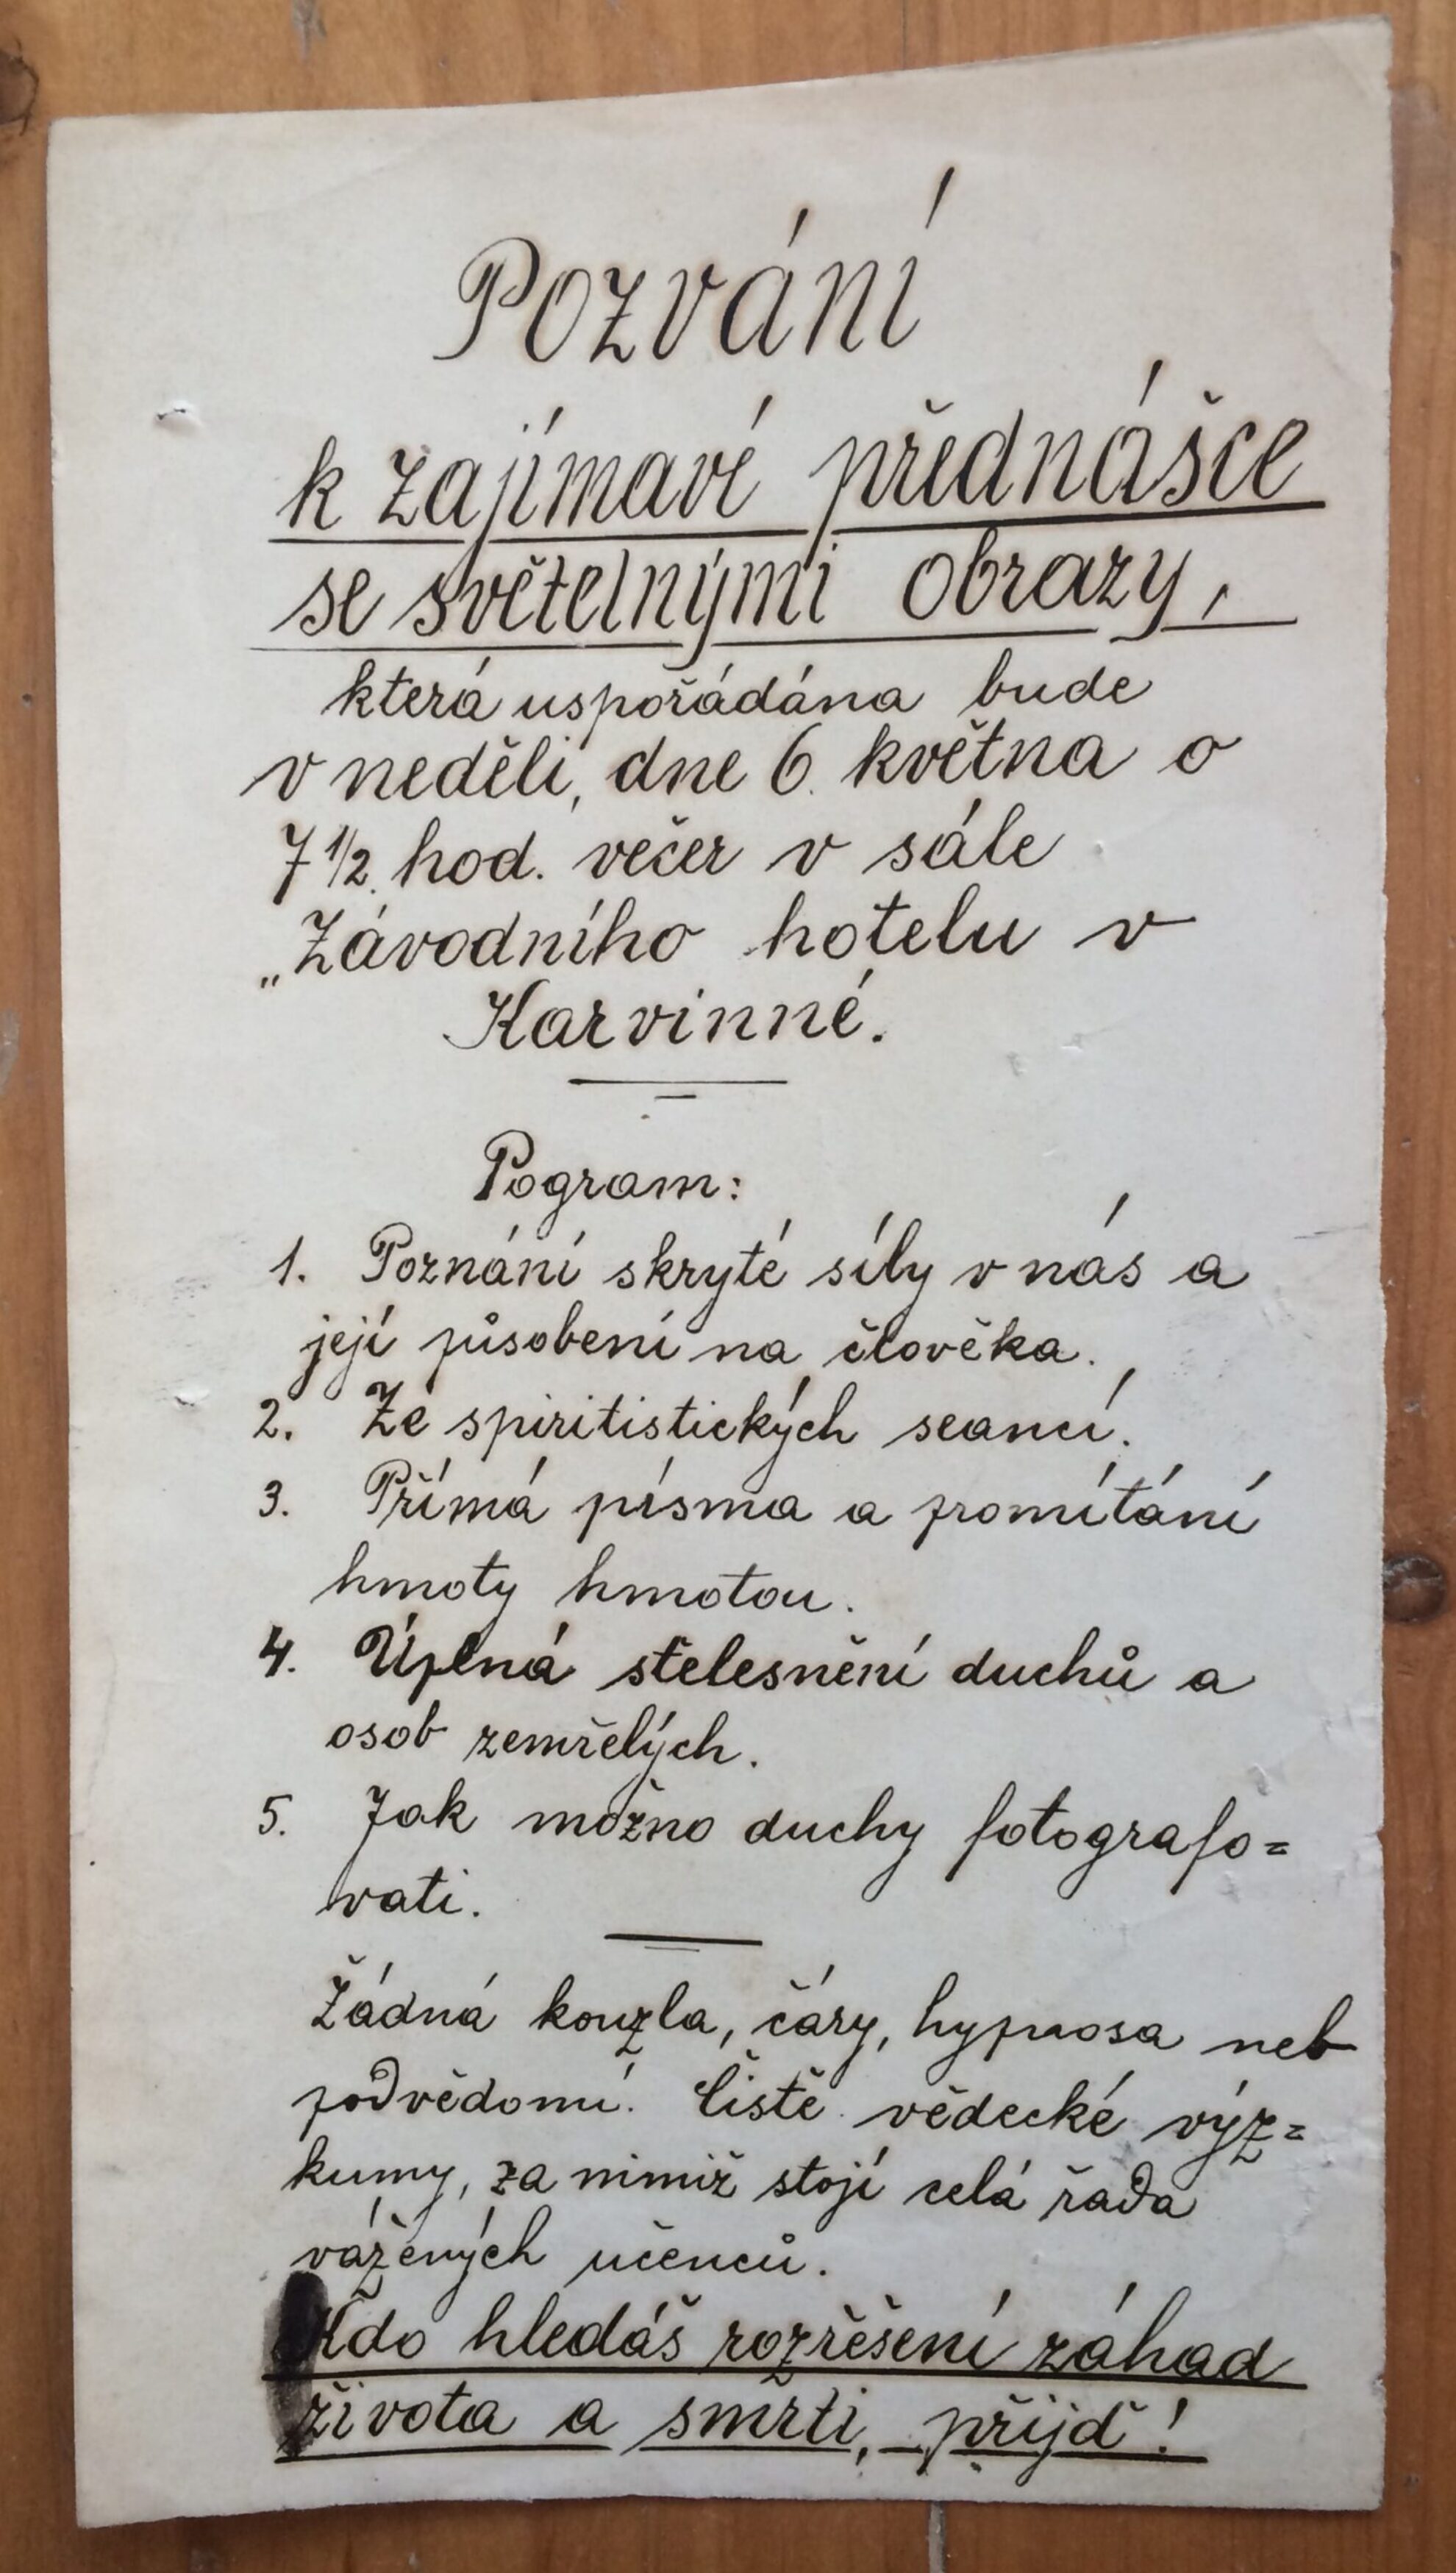 Pozvání
k zajímavé přednášce
se světelnými obrazy,
která uspořádána bude
v neděli, dne 6. května o
7 1/2. hod. večer v sále
„Závodního hotelu v
Karvinné.
Pogram:
1. Poznání skryté síly v nás a
její působení na člověka.
2. Ze spiritistických seancí.
3. Přímá písma a promítání
hmoty hmotou.
4. Úplná stělesnění duchů a
osob zemřelých.
5. Jak možno duchy fotografo=
vati.
Žádná kouzla, čáry, hypnosa neb
podvědomí. Čistě vědecké výz=
kumy, za nimiž stojí celá řada
vážených učenců.
Kdo hledáš rozřěšení záhad
života a smrti, – přijď!